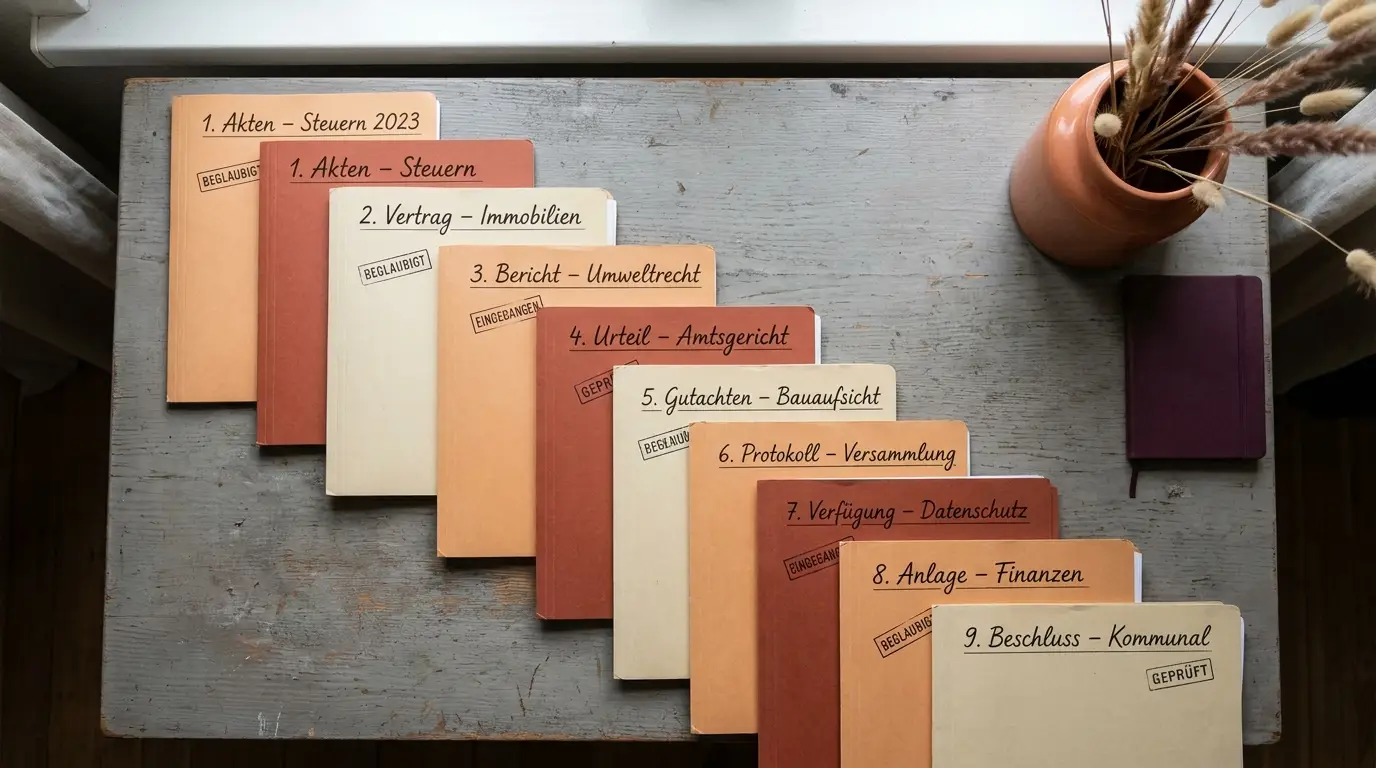 1. Akten – Steuern 2023
BEGLAUBIGT
1. Akten – Steuern
2. Vertrag – Immobilien
BEGLAUBIGT
3. Bericht – Umweltrecht
EINGEBANGEN
4. Urteil – Amtsgericht
GEPR
5. Gutachten – Bauaufsicht
6. Protokoll – Versammlung
7. Verfügung – Datenschutz
EINGEGANG
8. Anlage – Finanzen
BEGLAUBIGT
9. Beschluss – Kommunal
GEPRÜFT